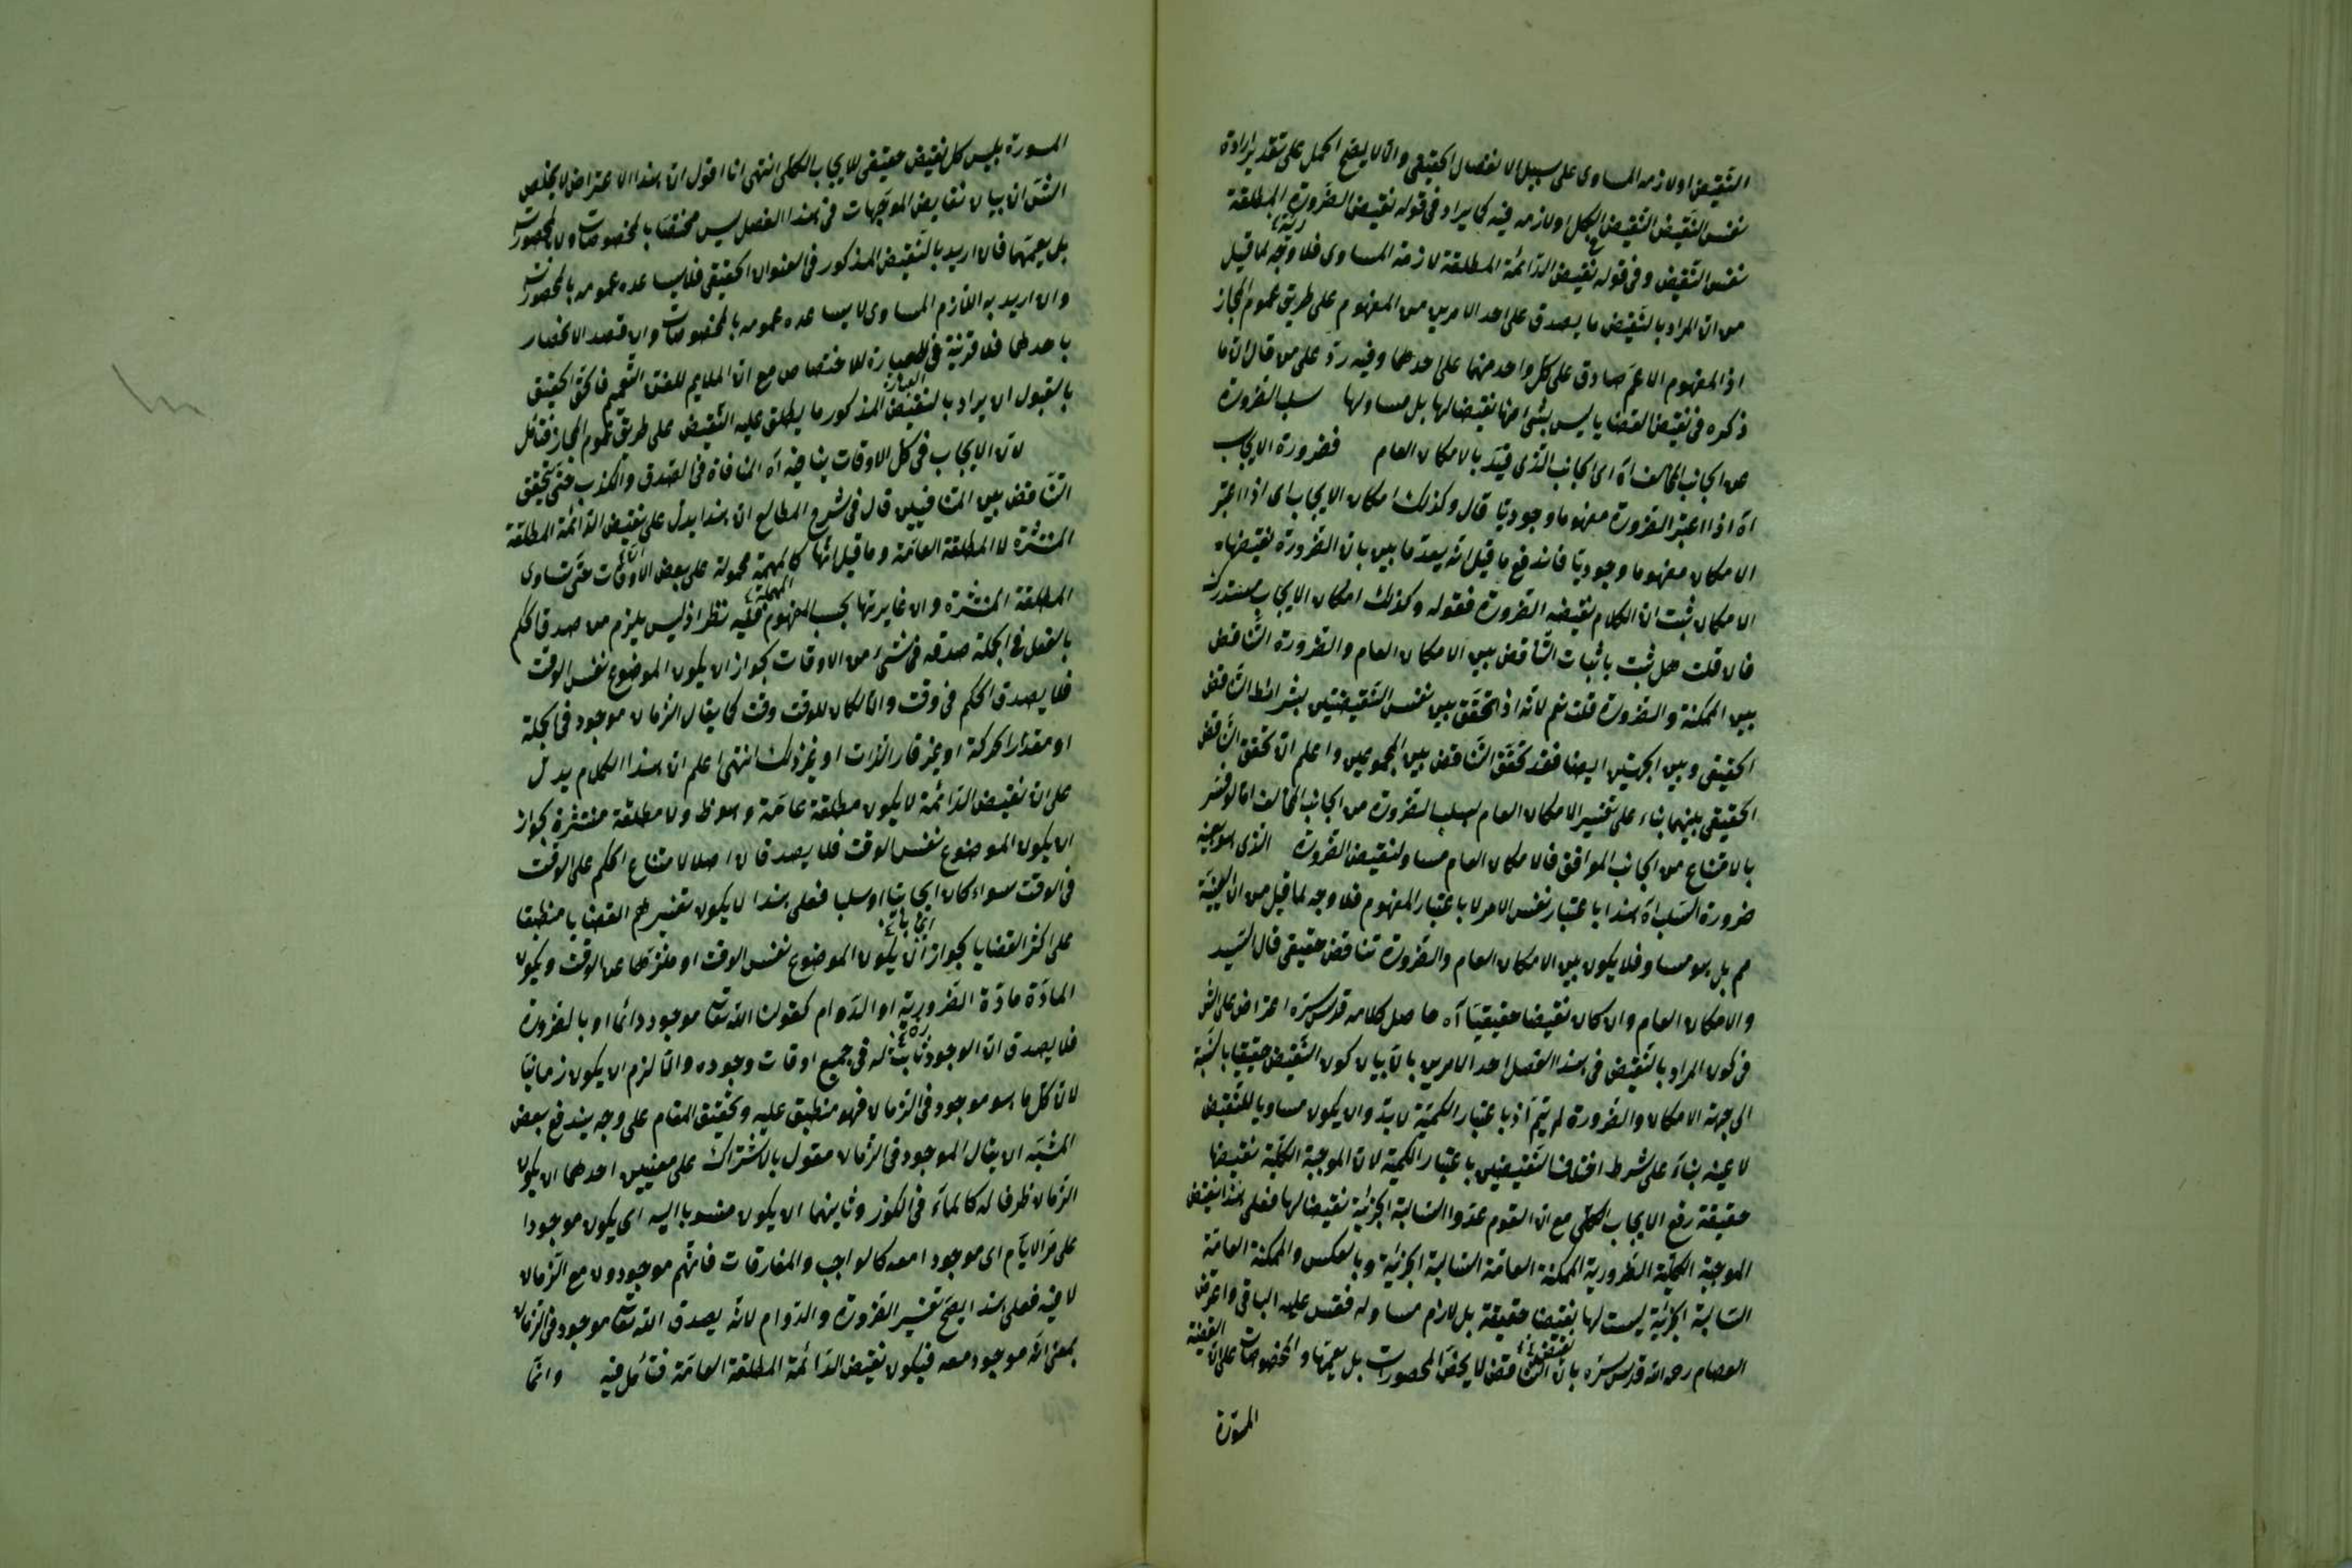 النقيض او لازمه المساوى على سبيل الانفصال الحقيقى والّا لا يصح الحمل على تقدير ارادة
نفس النقيض النقيض الكل او لازمه فيه كما يراد فى قوله نقيض الضرورية المطلقة
نفس النقيض وفى قوله نقيض الدائمة المطلقة لازمة المساوى فلا وجه لما قيل
من ان المراد بالنقيض ما يصدق على احد الامرين من المفهوم على طريق عموم المجاز
اذ المفهوم الاعم صادق على كل واحد منهما على احدهما وفيه ردّ على من قال ان ما
ذكره فى نقيض القضايا ليس بشئ منها نقيضا لها بل مساو لها سلب الضرورة
عن الجانب المخالف آه اى الجانب الذى قيّد بالامكان العام فضرورة الايجاب
آه اذا اعتبر الضرورة مفهوما وجوديّا قال وكذلك امكان الايجاب اى اذا اعتبر
الامكان مفهوما وجوديّا فاندفع ما قيل انه يعدّ ما بين بان الضرورة نقيضها
الامكان ثبت ان الامكان نقيضه الضرورة فقوله وكذلك امكان الايجاب مستدرك
فان قلت هل ثبت باثبات التناقض بين الامكان العام والضرورة التناقض
بين الممكنة والضرورة قلت نعم لانه اذا تحقق بين نفس النقيضين بشرائط التناقض
الحقيقى وبين الجهتين ايضا فقد تحقق التناقض بين المجموعين واعلم ان تحقق التناقض
الحقيقى بينهما بناء على تفسير الامكان العام بسلب الضرورة من الجانب المخالف اما لو فسر
بالامتناع من الجانب الموافق فالامكان العام مساو لنقيض الضرورة الذى هو عينه
ضرورة السلب آه هذا باعتبار نفس الامر لا باعتبار المفهوم فلا وجه لما قيل من ان العينية
مم بل هو مساو فلا يكون بين الامكان العام والضرورة تناقض حقيقى قال السيد
والامكان العام وان كان نقيضا حقيقيّا آه حاصل كلامه قدس سره اعتراض على الش
فى كون المراد بالنقيض فى هذا الفصل احد الامرين بان بيان كون النقيض حقيقيا بالنسبة
الى جهة الامكان والضرورة لم يتم اذ باعتبار الكمية لا بدّ وان يكون مساويا للنقيض
لا عينه بناء على شرط اختلاف النقيضين باعتبار الكمية لان الموجبة الكلية نقيضها
حقيقة رفع الايجاب الكلى مع ان القوم عدّوا السالبة الجزئية نقيضا لها فعلى هذا نقيض
الموجبة الكلية الضرورية الممكنة العامة السالبة الجزئية وبالعكس والممكنة العامة
السالبة الجزئية ليست لها نقيضا حقيقة بل لازم مساو له فقس عليه الباقى واعترض
العصام رحه الله قدس سره بان التناقض لا يخص المحصورات بل يعمها والمخصوصات على ان القضية
المسورة
المسورة بليس كل نقيض حقيقى للايجاب الكلى انتهى انا اقول ان هذا الاعتراض لا يخلص
الش ان بيان نقايض الموجّهات فى هذا الفصل ليس مختصا بالمخصوصات ولا بالمحصورات
بل يعمّهما فان اريد بالنقيض المذكور فى العنوان الحقيقى فلا يساعده عمومه بالمحصورات
وان اريد به اللازم المساوى لا يساعده عمومه بالمخصوصات وان قصد الانحصار
باحدهما فلا قرينة فى العبارة للاختصاص مع ان الملايم للفن التعميم فالحق الحقيق
بالقبول ان يراد بالنقيض المذكور ما يطلق عليه النقيض على طريق عموم المجاز فتأمل
لان الايجاب فى كل الاوقات ينافيه آه المنافاة فى الصدق والكذب حتى تحقق
التناقض بين المتنافيين قال فى شرح المطالع ان هذا يدل على نقيض الدائمة المطلقة
المنتشرة لا المطلقة العامة وما قيل انها كالمهمة محمولة على بعض الاوقات حتى تساوى
المطلقة المنتشرة وان غايرتها بحسب المفهوم ففيه نظر اذ ليس يلزم من صدق الحكم
بالفعل فى الجملة صدقه فى شئ من الاوقات لجواز ان يكون الموضوع نفس الوقت
فلا يصدق الحكم فى وقت والّا لكان للوقت وقت كما يقال الزمان موجود فى الجملة
او مقدار الحركة او غير قار الذات او غير ذلك انتهى اعلم ان هذا الكلام يدل
على ان نقيض الدائمة لا يكون مطلقة عامة وهو ظ ولا مطلقة منتشرة لجواز
ان يكون الموضوع نفس الوقت فلا يصدقان اصلا لامتناع الحكم على الوقت
فى الوقت سواء كان ايجابا او سلبا فعلى هذا لا يكون تفسيرهم القضايا منطبقا
على اكثر القضايا لجواز ان يكون الموضوع نفس الوقت او منزها عن الوقت ويكون
المادّة مادّة الضرورية او الدوام كقولنا الله تعالى موجود دائما او بالضرورة
فلا يصدق ان الوجود ثابت له فى جميع اوقات وجوده والّا لزم ان يكون زمانيّا
لان كل ما هو موجود فى الزمان فهو منطبق عليه وتحقيق المقام على وجه يندفع بعض
الشبه ان يقال الموجود فى الزمان مقول بالاشتراك على معنيين احدهما ان يكون
الزمان ظرفا له كالماء فى الكوز وثانيهما ان يكون منسوبا اليه اى يكون موجودا
على مرّ الايام اى موجودا معه كالواجب والمفارقات فانهم موجودون مع الزمان
لا فيه فعلى هذا يصحّ تفسير الضرورة والدوام لانه يصدق الله تعالى موجود فى الزمان
بمعنى انه موجود معه فيكون نقيض الدائمة المطلقة العامة فتأمل فيه وانّما